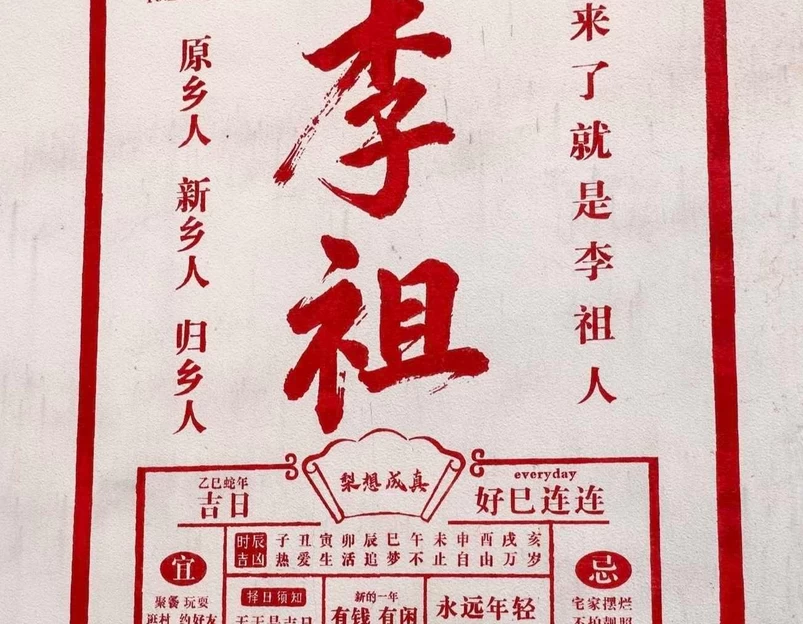 李祖
来了就是李祖人
原乡人 新乡人 归乡人
梨想成真
乙巳蛇年
吉日
everyday
好巳连连
时辰吉凶
子丑寅卯辰巳午未申酉戌亥
热爱生活追梦不止自由万岁
宜
聚餐 玩耍
逛村 约好友
择日须知
天天是吉日
新的一年
有钱 有闲
永远年轻
忌
宅家摆烂
不拍靓照